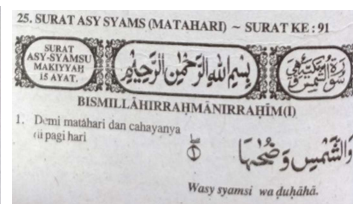 25. SURAT ASY SYAMS (MATAHARI) ~ SURAT KE : 91
SURAT
ASY-SYAMSU
MAKIYYAH
15 AYAT.
بِسْمِ اللهِ الرَّحْمٰنِ الرَّحِيْمِ
BISMILLÂHIRRAHMÂNIRRAHÎM(I)
1. Demi matahari dan cahayanya
pagi hari
وَالشَّمْسِ وَضُحٰىهَا
Wasy syamsi wa duhâhâ.